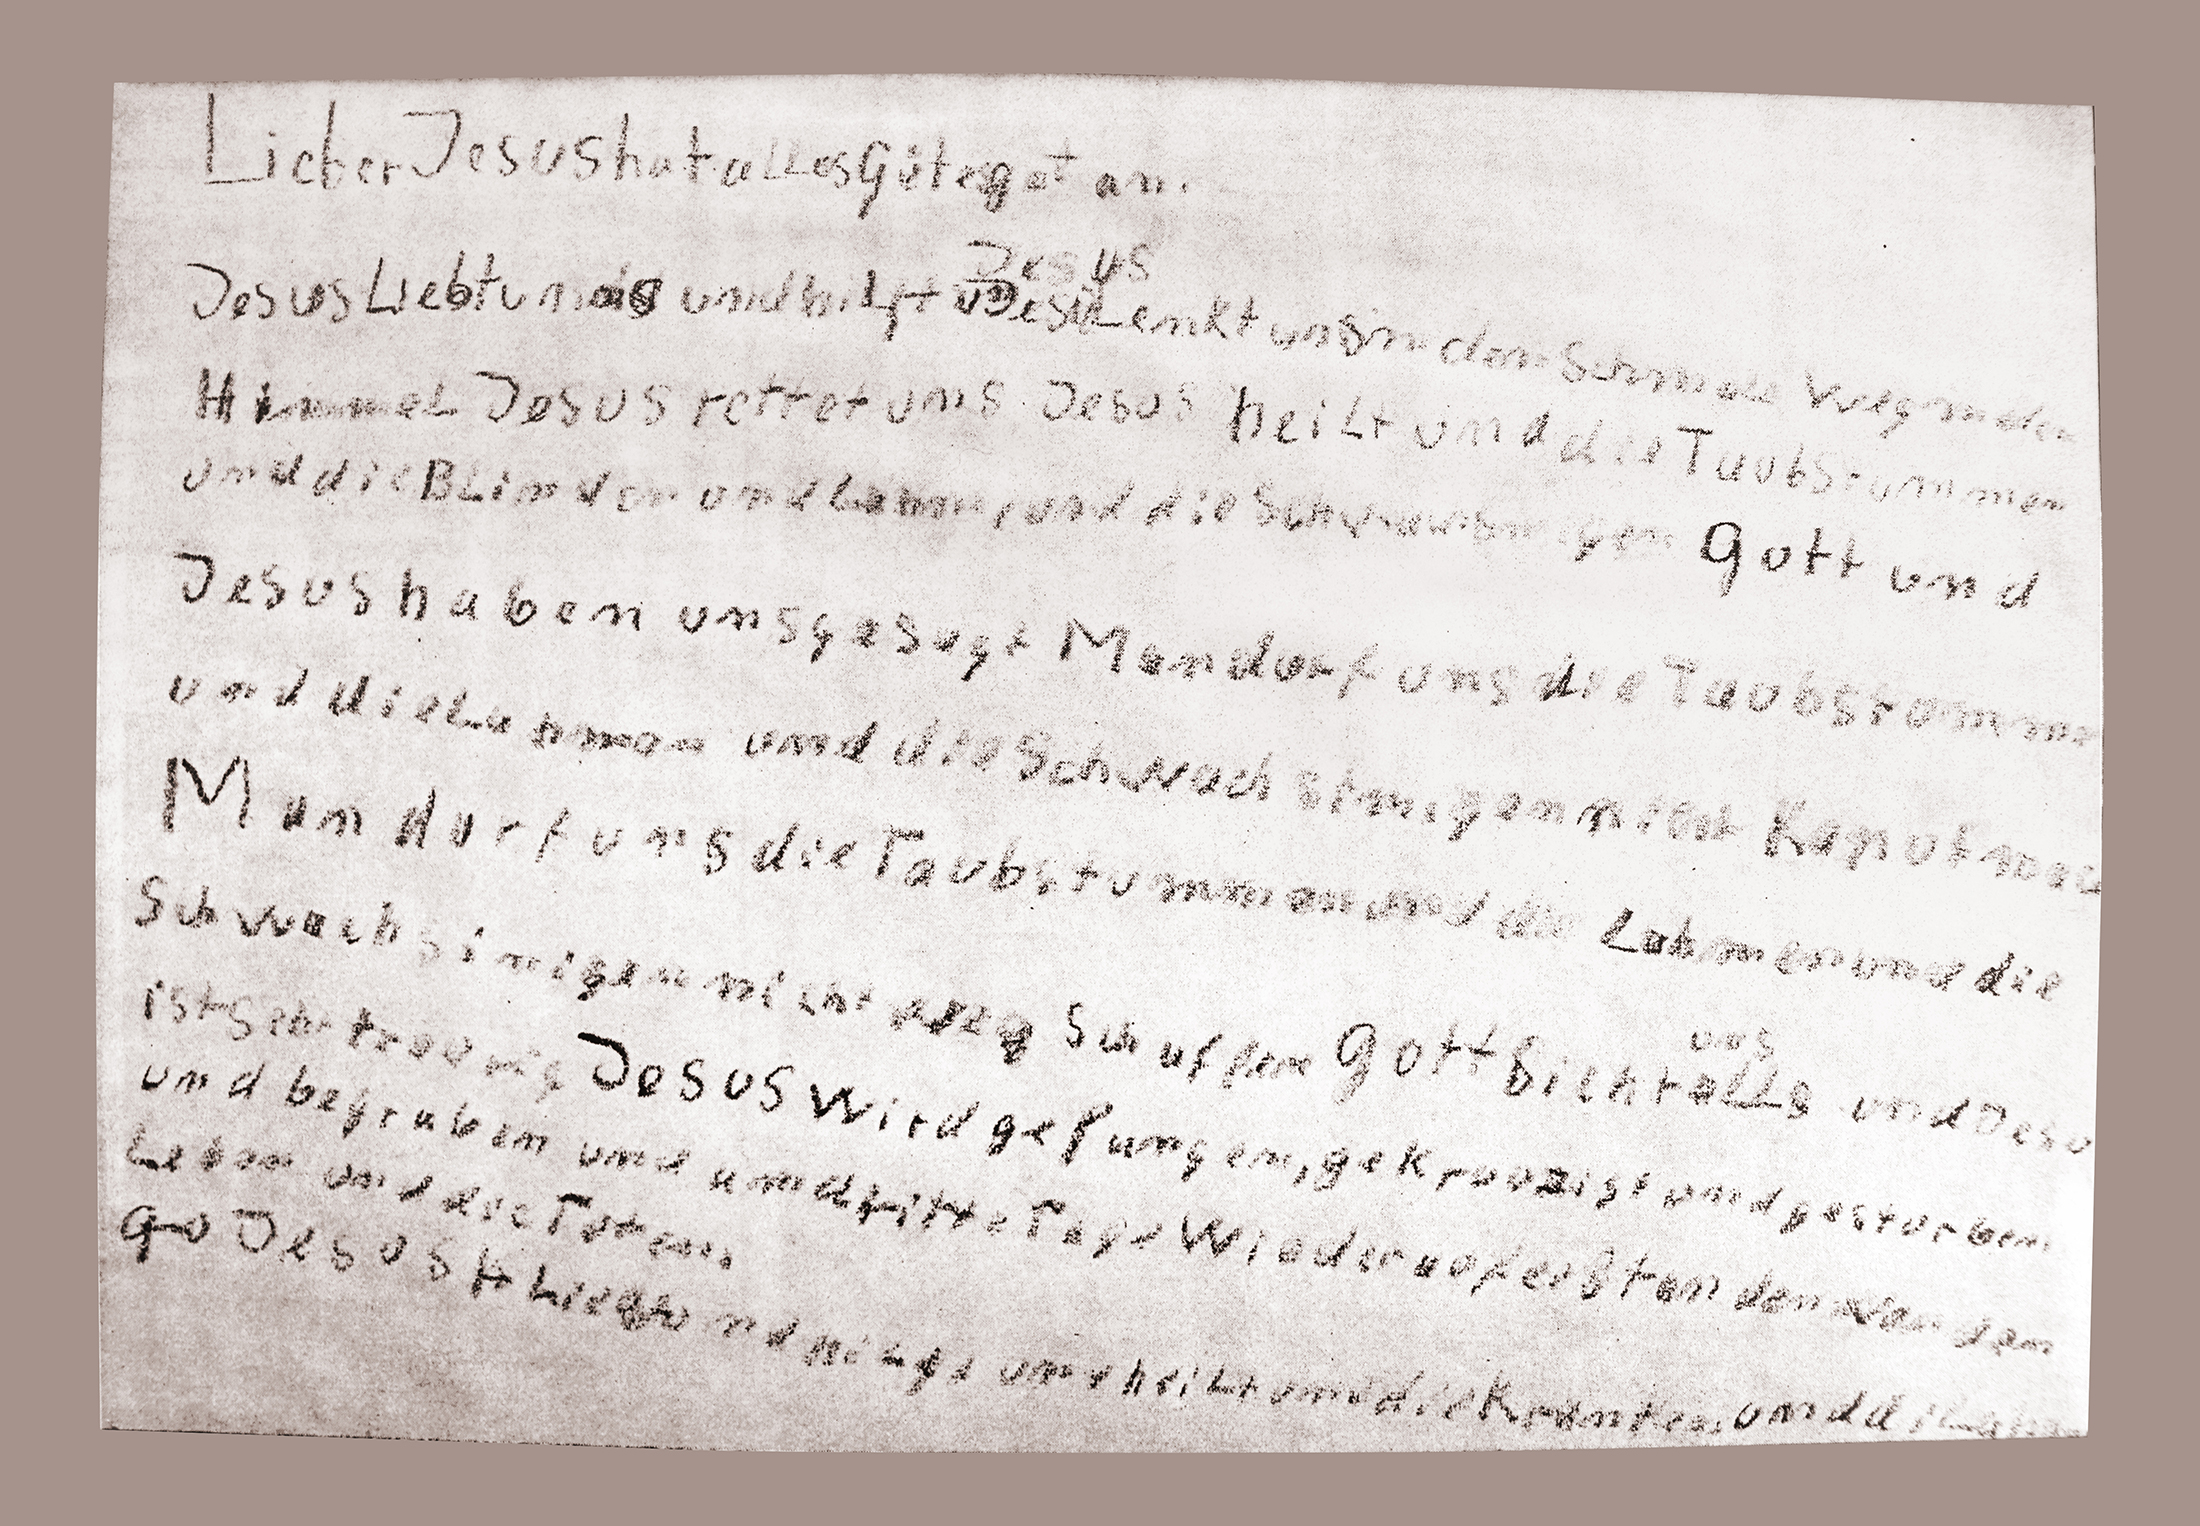 Lieber Jesus hat alles Güte get an.
Jesus
Jesus Liebt uns und hilft Lenkt uns in den Schmale Weg in den
Himmel Jesus rettet uns Jesus heilt und die Taubstummen
und die Blinden und Lahme, und die Gott und
Jesus haben uns gesagt Man durf uns die Taubstumme
und die Lahmen und die Schwachsinigen nicht Kaput
Man durf uns die Taubstummen und die Lahmen und die
Schwachsinigen nicht weg Schuffen Gott Sieht alls und Jesu
uns
ist sehr traurig Jesus Wird gefungen, gekreuzigt und gesturben
und begraben und am dritte Tage Wieder auferstanden den
Leben und die Toten,
go Jesus Liebt und heilt und die Kranken, und die